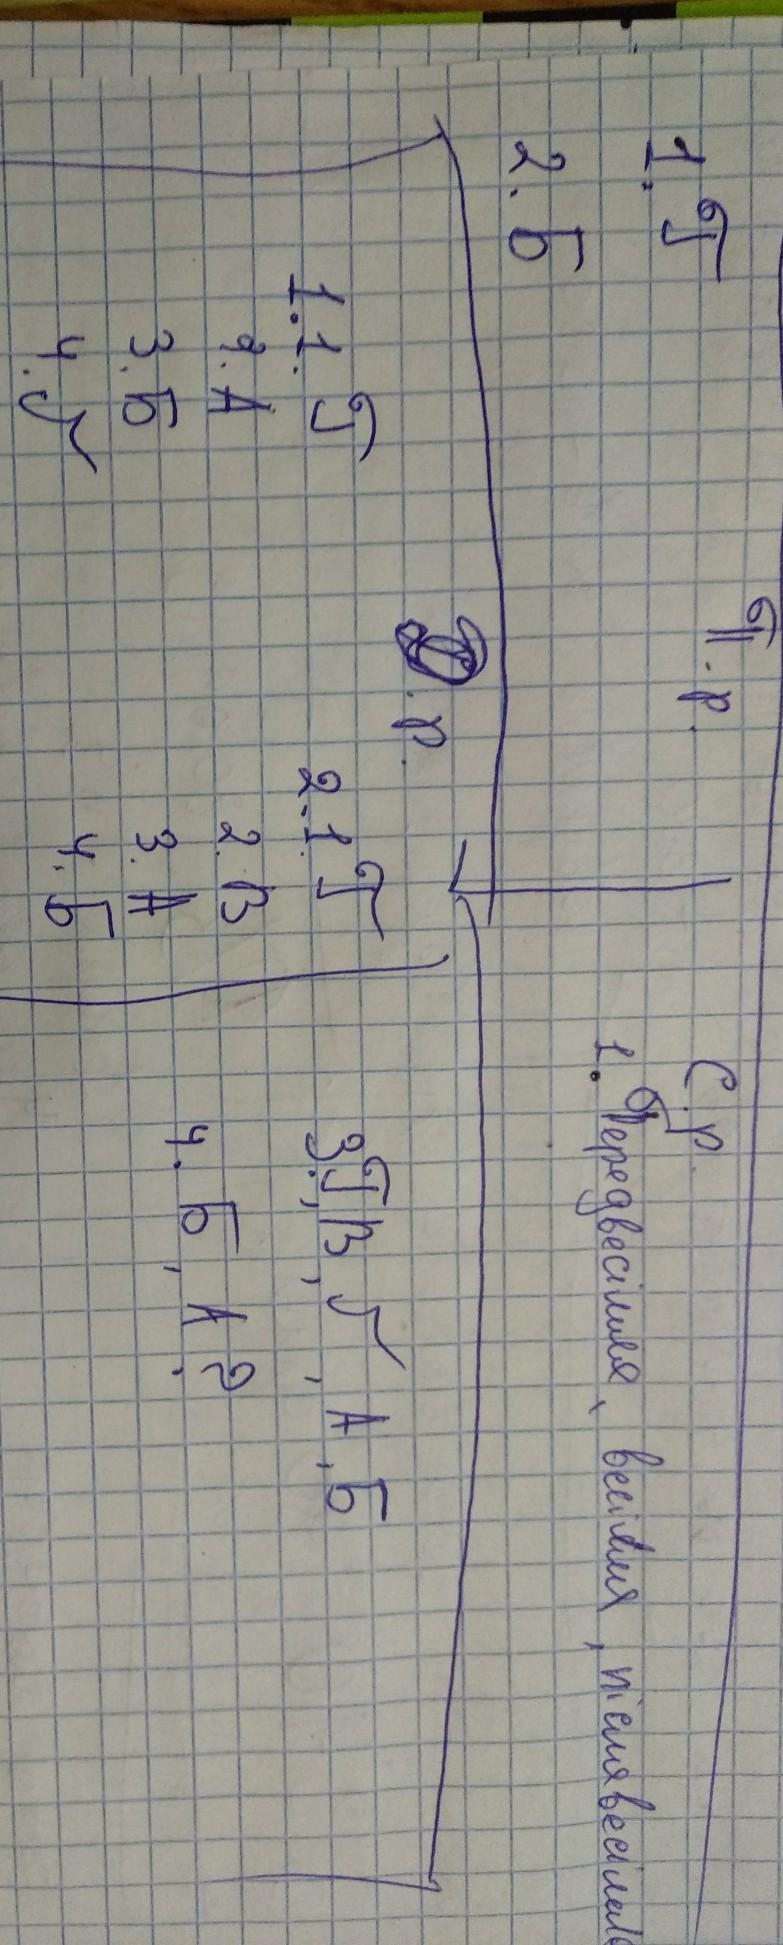 П. р.
1. Г
2. Б
С. р.
1. Передвесілля, весілля,
Д. р.
1. 1. Г
2. А
3. Б
4. Д
2. 1. Г
2. В
3. А
4. Б
3. Г, В, Д, А, Б
4. Б, А ?